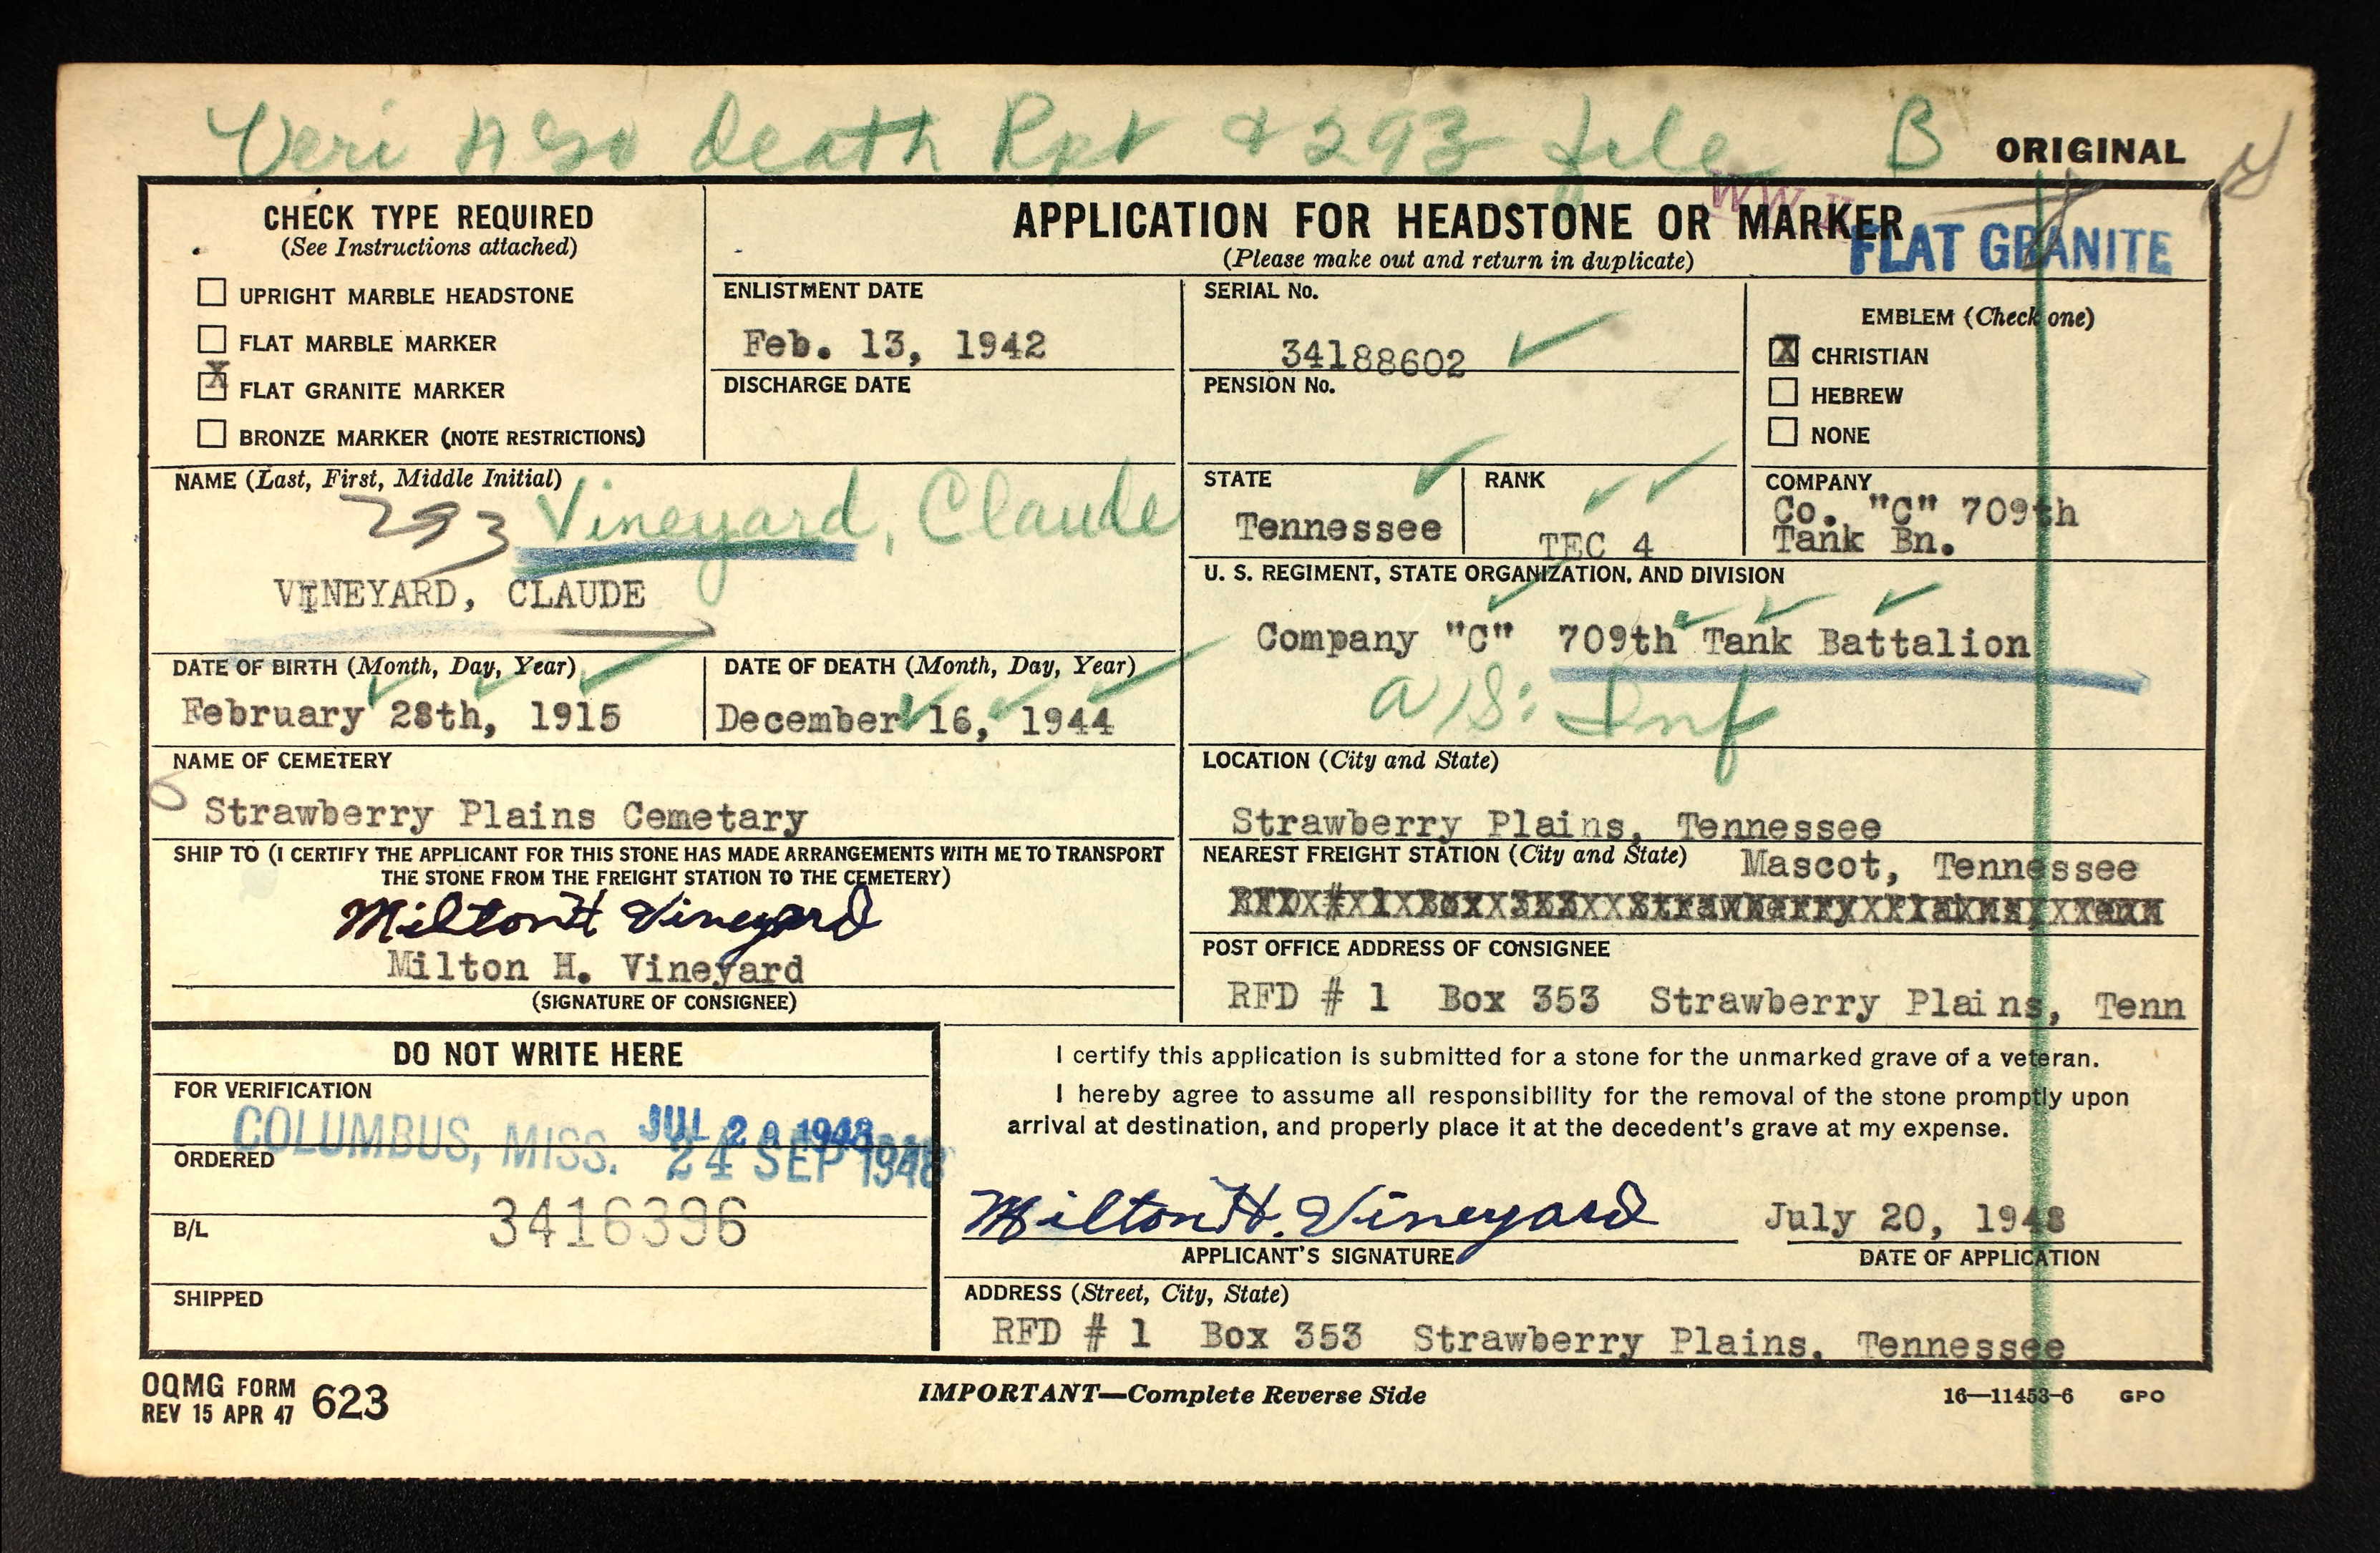 Veri Death Rpt & 293 file B
ORIGINAL
CHECK TYPE REQUIRED
(See Instructions attached)
UPRIGHT MARBLE HEADSTONE
FLAT MARBLE MARKER
X FLAT GRANITE MARKER
BRONZE MARKER (NOTE RESTRICTIONS)
WW II
APPLICATION FOR HEADSTONE OR MARKER
(Please make out and return in duplicate)
FLAT GRANITE
ENLISTMENT DATE
Feb. 13, 1942
DISCHARGE DATE
SERIAL No.
34188602
PENSION No.
EMBLEM (Check one)
X CHRISTIAN
HEBREW
NONE
NAME (Last, First, Middle Initial)
293 Vineyard, Claude
VINEYARD, CLAUDE
STATE
Tennessee
RANK
TEC 4
COMPANY
Co. "C" 709th
Tank Bn.
U. S. REGIMENT, STATE ORGANIZATION, AND DIVISION
Company "C" 709th Tank Battalion
A/S: Inf
DATE OF BIRTH (Month, Day, Year)
February 28th, 1915
DATE OF DEATH (Month, Day, Year)
December 16, 1944
NAME OF CEMETERY
Strawberry Plains Cemetary
LOCATION (City and State)
Strawberry Plains, Tennessee
SHIP TO (I CERTIFY THE APPLICANT FOR THIS STONE HAS MADE ARRANGEMENTS WITH ME TO TRANSPORT
THE STONE FROM THE FREIGHT STATION TO THE CEMETERY)
Milton H Vineyard
Milton H. Vineyard
(SIGNATURE OF CONSIGNEE)
NEAREST FREIGHT STATION (City and State) Mascot, Tennessee
POST OFFICE ADDRESS OF CONSIGNEE
RFD # 1 Box 353 Strawberry Plains, Tenn
DO NOT WRITE HERE
FOR VERIFICATION
JUL 20 1948
COLUMBUS, MISS. 24 SEP 1948
ORDERED
3416396
B/L
SHIPPED
I certify this application is submitted for a stone for the unmarked grave of a veteran.
I hereby agree to assume all responsibility for the removal of the stone promptly upon
arrival at destination, and properly place it at the decedent's grave at my expense.
Milton H. Vineyard July 20, 1948
APPLICANT'S SIGNATURE DATE OF APPLICATION
ADDRESS (Street, City, State)
RFD # 1 Box 353 Strawberry Plains, Tennessee
OQMG FORM 623
REV 15 APR 47
IMPORTANT—Complete Reverse Side
16—11453-6 GPO